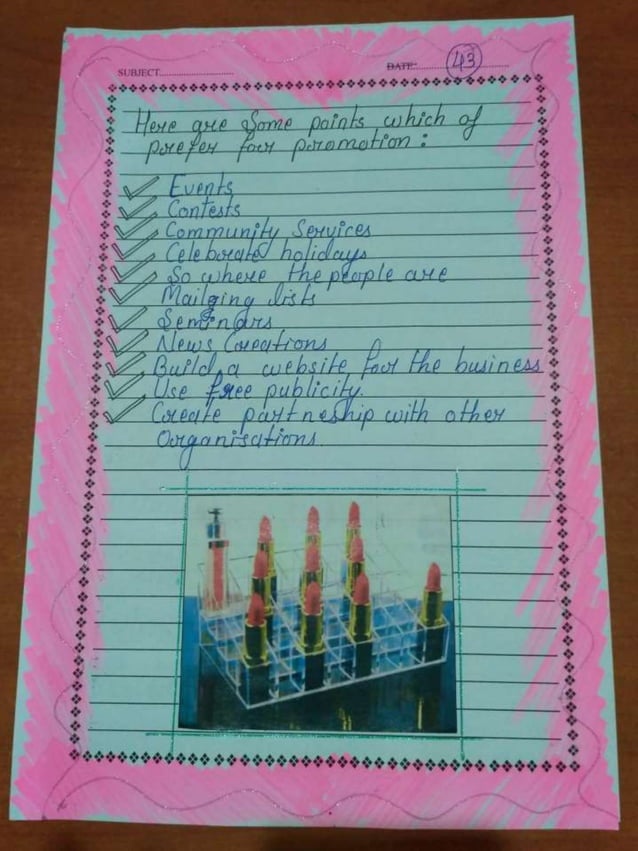 SUBJECT............................ DATE:............................ 43
Here are Some points which of
prefer for promotion :
Events
Contests
Community Services
Celebrated holidays
So where the people are
Mailging lists
Seminars
News Creations
Build a website for the business
Use free publicity.
Create partneship with other
Organisations.